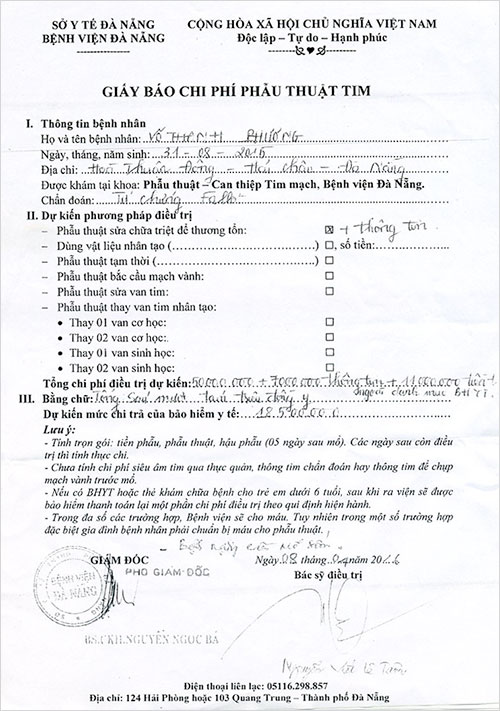 SỞ Y TẾ ĐÀ NẴNG
BỆNH VIỆN ĐÀ NẴNG
CỘNG HÒA XÃ HỘI CHỦ NGHĨA VIỆT NAM
Độc lập – Tự do – Hạnh phúc
GIẤY BÁO CHI PHÍ PHẪU THUẬT TIM
I. Thông tin bệnh nhân
Họ và tên bệnh nhân: VÕ THANH PHƯƠNG
Ngày, tháng, năm sinh: 31 - 08 - 2015
Địa chỉ: Hoà Thuận Đông - Hải Châu - Đà Nẵng
Được khám tại khoa: Phẫu thuật – Can thiệp Tim mạch, Bệnh viện Đà Nẵng.
Chẩn đoán: Tứ chứng Fallot
II. Dự kiến phương pháp điều trị
– Phẫu thuật sửa chữa triệt để thương tổn: ☒ + thông tim
– Dùng vật liệu nhân tạo (..............................) ☐, số tiền:..............
– Phẫu thuật tạm thời (..............................) ☐
– Phẫu thuật bắc cầu mạch vành: ☐
– Phẫu thuật sửa van tim: ☐
– Phẫu thuật thay van tim nhân tạo:
• Thay 01 van cơ học: ☐
• Thay 02 van cơ học: ☐
• Thay 01 van sinh học: ☐
• Thay 02 van sinh học: ☐
Tổng chi phí điều trị dự kiến: 50000000 + 7000000 thông tim + 11000000
ngoài danh mục BHYT
III. Bằng chữ: mươi tám triệu đồng y
Dự kiến mức chi trả của bảo hiểm y tế: 18.500.000
Lưu ý:
- Tính trọn gói: tiền phẫu, phẫu thuật, hậu phẫu (05 ngày sau mổ). Các ngày sau còn điều
trị thì tính thực chi.
- Chưa tính chi phí siêu âm tim qua thực quản, thông tim chẩn đoán hay thông tim để chụp
mạch vành trước mổ.
- Nếu có BHYT hoặc thẻ khám chữa bệnh cho trẻ em dưới 6 tuổi, sau khi ra viện sẽ được
bảo hiểm thanh toán lại một phần chi phí điều trị theo qui định hiện hành.
- Trong đa số các trường hợp, Bệnh viện sẽ cho máu. Tuy nhiên trong một số trường hợp
đặc biệt gia đình bệnh nhân phải chuẩn bị máu cho phẫu thuật.
cần mổ sớm
GIÁM ĐỐC
PHÓ GIÁM ĐỐC
Ngày 08 tháng 04 năm 2016
Bác sỹ điều trị
BỆNH VIỆN
ĐÀ NẴNG
BS.CKII.NGUYỄN NGỌC BÁ
Nguyễn
Điện thoại liên lạc: 05116.298.857
Địa chỉ: 124 Hải Phòng hoặc 103 Quang Trung – Thành phố Đà Nẵng